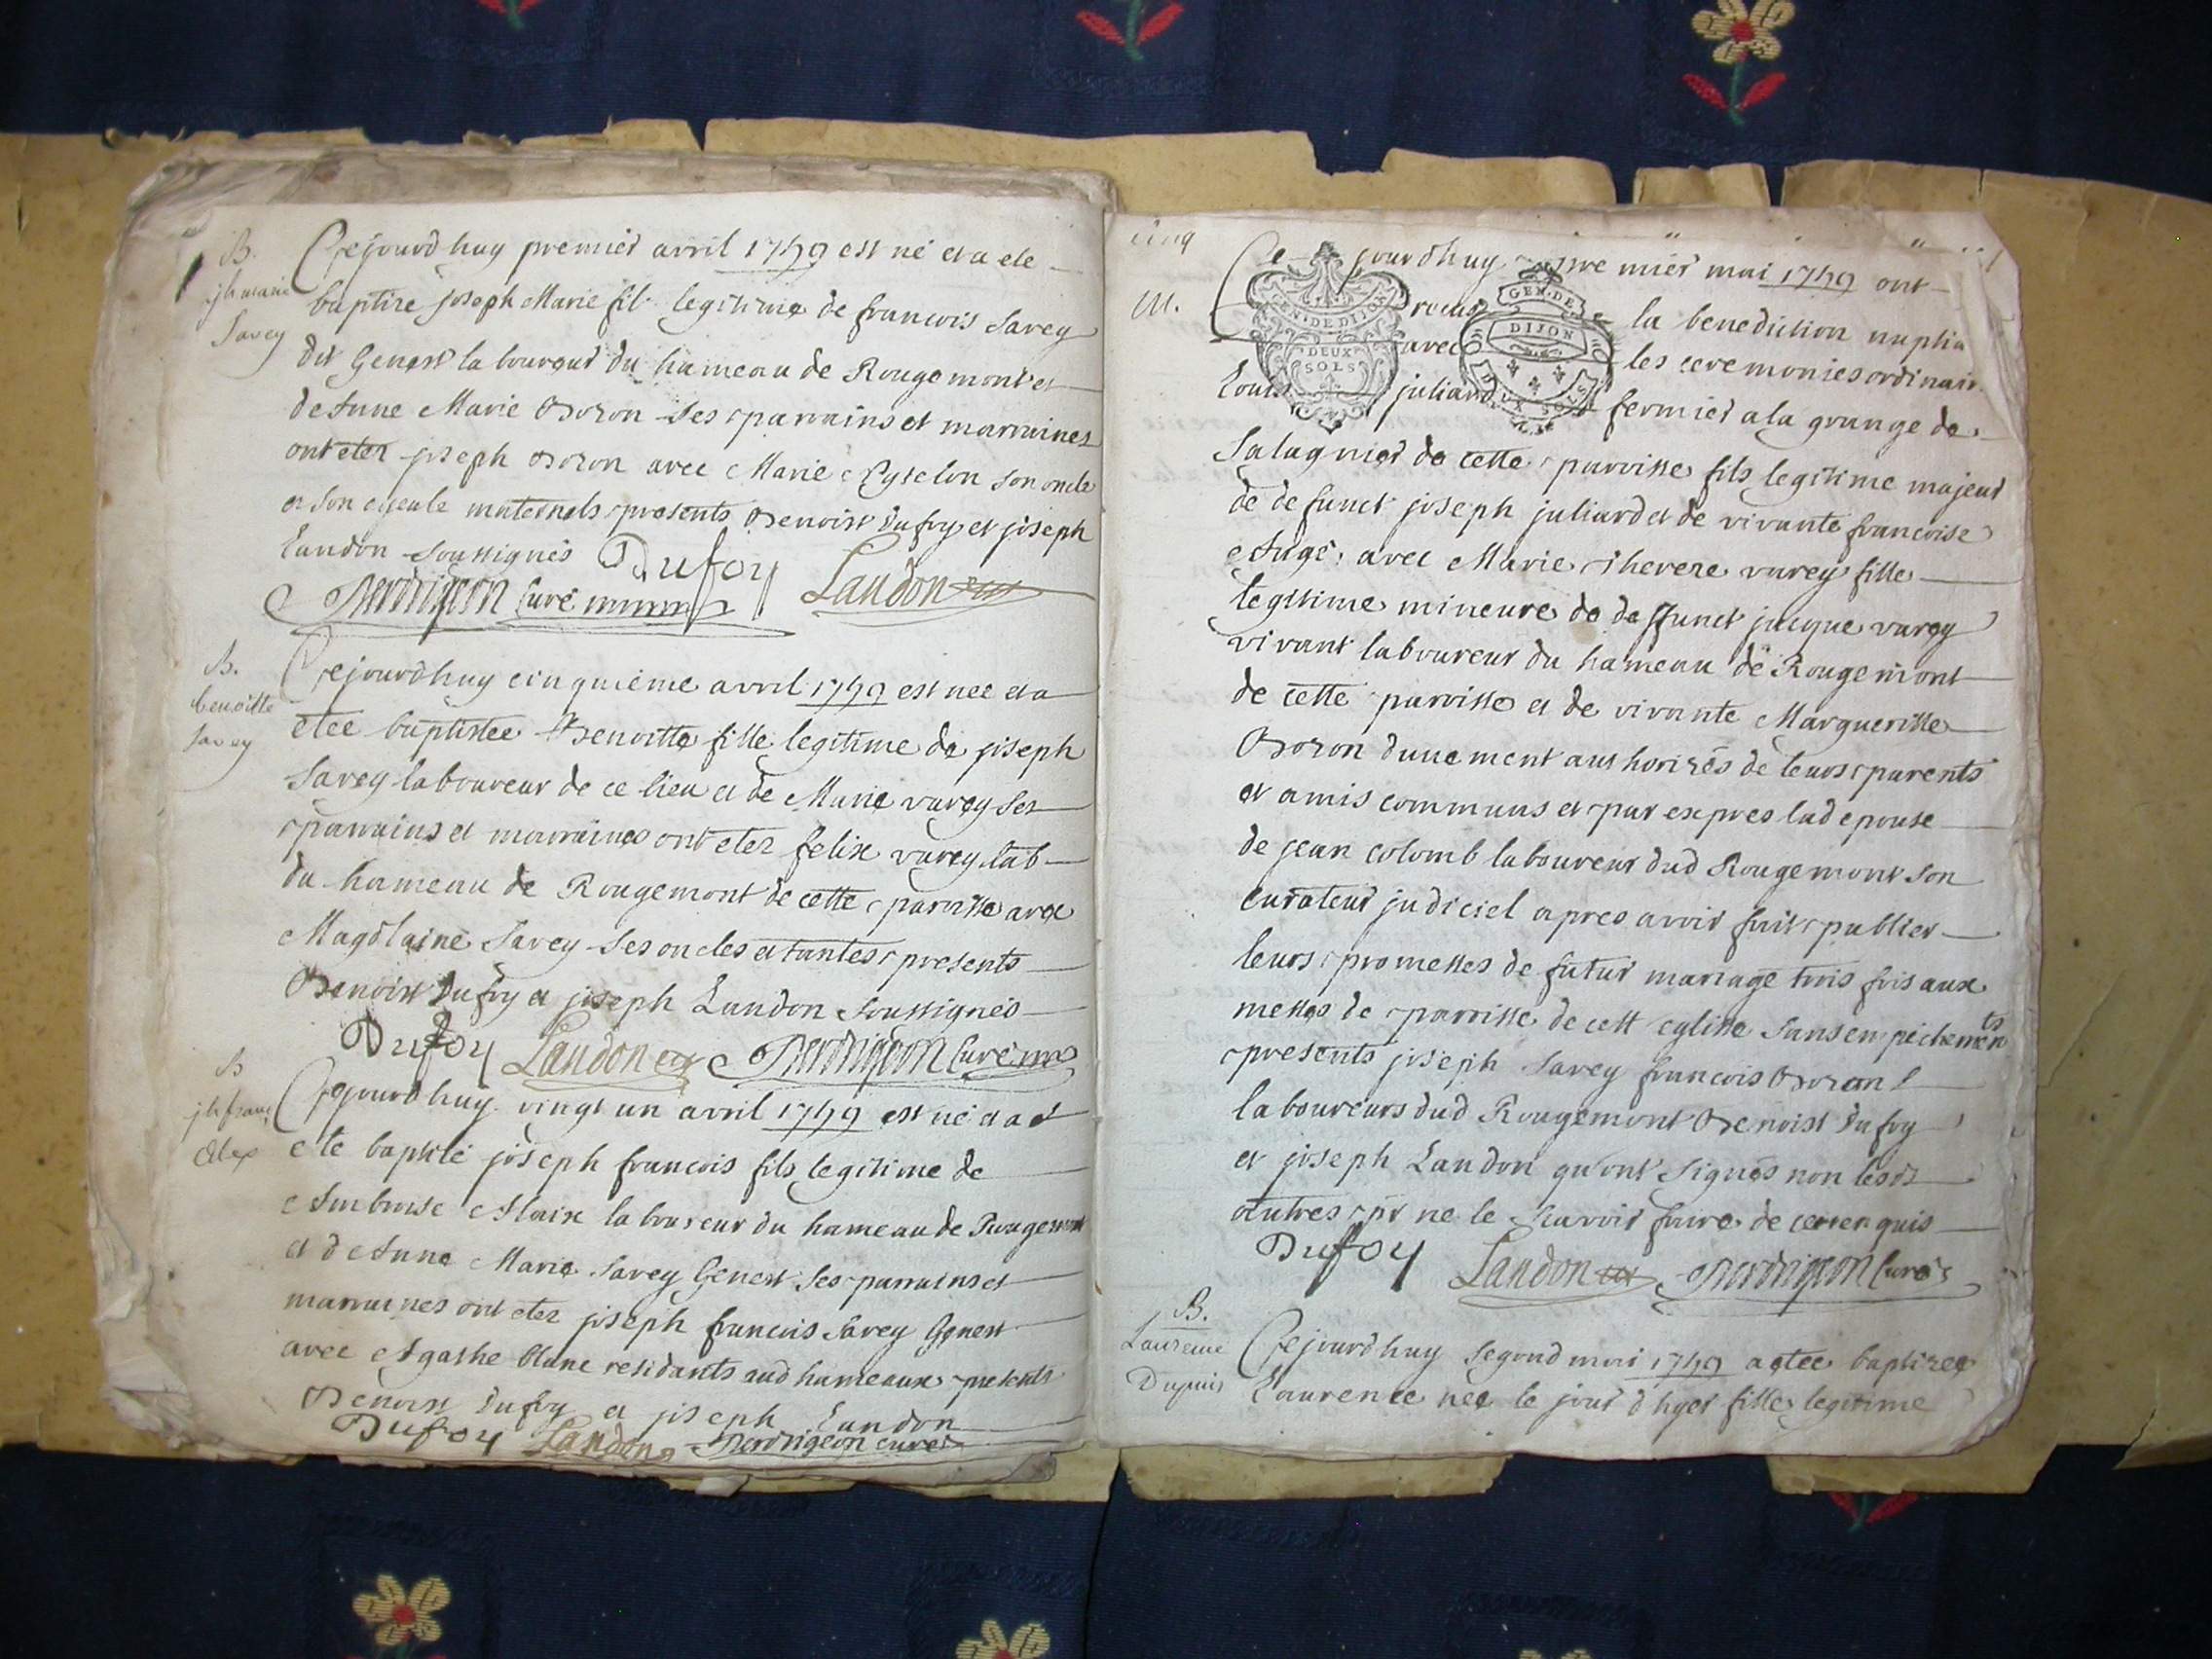 B.
jh marie
Savey
Cejourdhuy premier avril 1749 est né et a ete
baptire joseph Marie fils legitime de francois Savey
dit Genest laboureur du hameau de Rougemont et
d'Anne Marie Bozon ses parrains et marraines
ont etez joseph Bozon avec Marie son oncle
et son ayeule maternels presents Benoist Dufoy et joseph
Landon soussignés Dufoy Landon
Perdrigeon Curé
B.
benoitte
Savey
Cejourdhuy cinquième avril 1749 est née et a
etée baptistée Benoitte fille legitime de joseph
Savey laboureur de ce lieu et de Marie varey ses
parrains et marraines ont etez felix varey lab
du hameau de Rougemont de cette paroisse avec
Magdlaine Savey ses oncles et tantes presents
Benoist Dufoy et joseph Landon soussignés
Dufoy Landon Perdrigeon Curé
B
jh franc
Alex
Cejourdhuy vingt un avril 1749 est né et a
ete baptisé joseph francois fils legitime de
Ambroise Alaix laboureur du hameau de Rougemont
et d'Anne Marie Savey Genest ses parrains et
marraines ont etez joseph francois Savey Genest
avec Agathe blanc residants aud hameaux presents
Benoist Dufoy et joseph Landon
Dufoy Landon Perdrigeon curé
cinq
M.
Ce jourdhuy premier mai 1749 ont
GEN. DE DIJON
DEUX
SOLS
GEN. DE
DIJON
DEUX SOLS
la benediction nuptia
avec les ceremonies ordinair
Louis juliard fermier a la grange de
Salagnier de cette paroisse fils legitime majeur
de defunct joseph juliard et de vivante francoise
avec Marie Therese varey fille
legitime mineure de deffunct jacque varey
vivant laboureur du hameau de Rougemont
de cette paroisse et de vivante Margueritte
Bozon duuement authorizés de leurs parents
et amis communs et par expres lad epouse
de jean colomb laboureur dud Rougemont son
curateur judiciel apres avoir fait publier
leurs promesses de futur mariage trois fois aux
messes de paroisse de cett eglisse sans enpechements
presents joseph Savey francois Bozon
laboureurs dud Rougemont Benoist Dufoy
et joseph Landon qu'ont signés non lesds
autres pr ne le scavoir faire de ce enquis
Dufoy Landon Perdrigeon Curé
B.
Laurence
Dupuis
Cejourdhuy segond mai 1749 a etée baptizée
Laurence née le jour d'hyer fille legitime